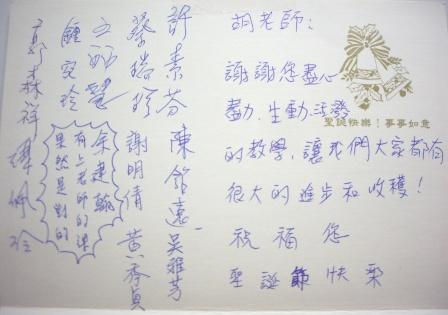 胡老師：
謝謝您盡心
盡力、生動活潑
的教學，讓我們大家都有
很大的進步和收穫！
祝福您
聖誕節快樂
聖誕快樂！事事如意
許素芬
陳
吳雅芳
蔡
謝明倩
黃秀貞
余建翰
有上老師的課
果然是對的
鍾安玲
森祥